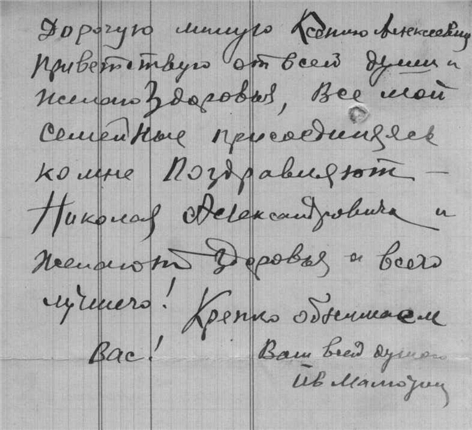 Дорогую милую Ксению Алексеевну
Приветствую от всей души и
желаю Здоровья, Все мои
семейные присоединяясь
ко мне Поздравляют —
Николая Александровича и
желают Здоровья и всего
лучшего! Крепко обнимаем
Вас! Ваш всей душою
Ив